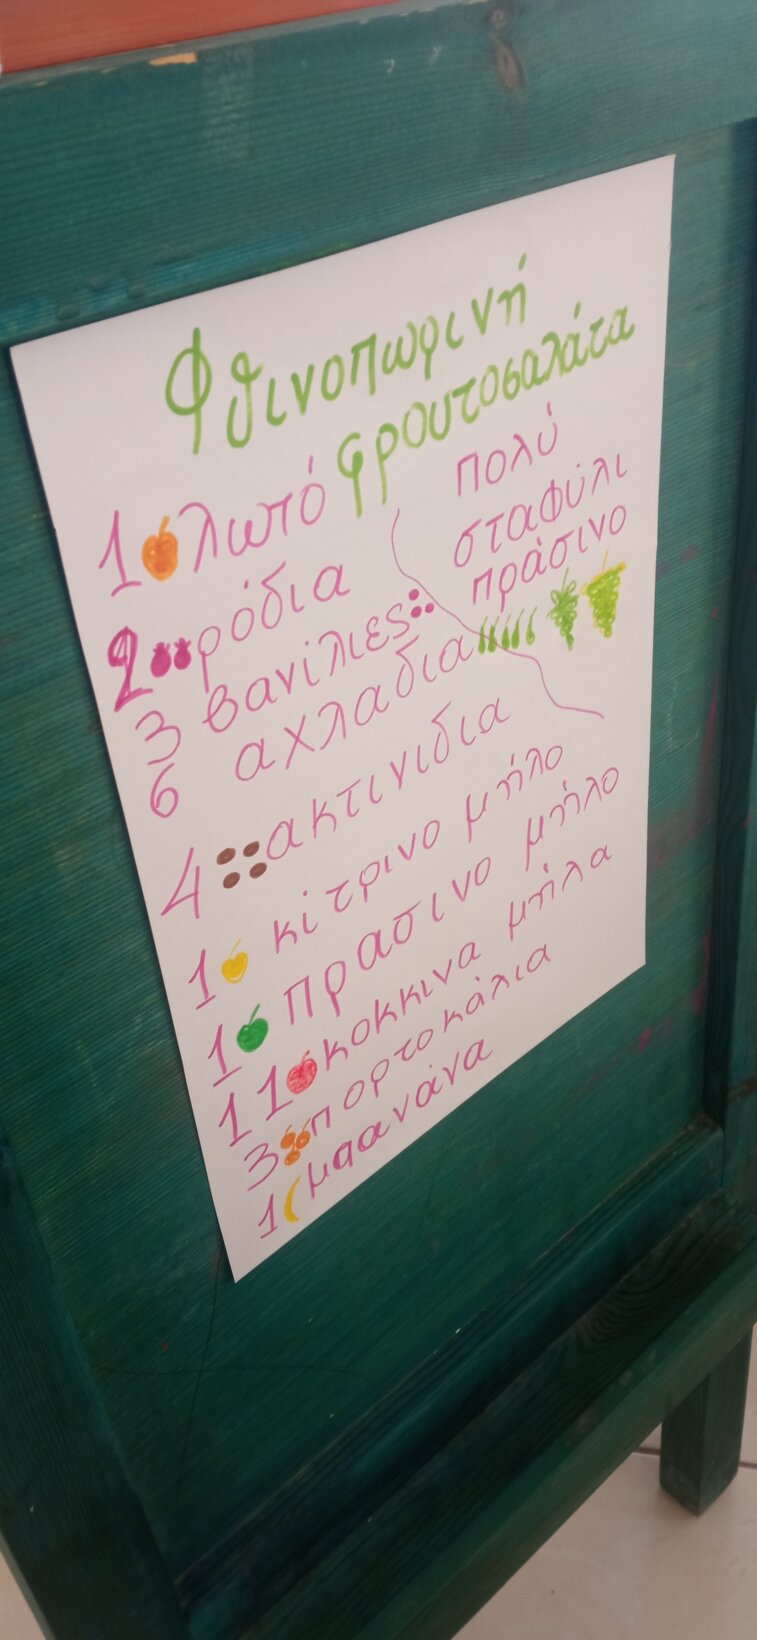 Φθινοπωρινή
φρουτοσαλάτα
1 λωτό
2 ρόδια
3 βανίλιες
6 αχλαδια
πολύ
σταφύλι
πράσινο
4 ακτινιδια
1 κίτρινο μήλο
1 πρασινο μήλο
11 κοκκινα μήλα
3 πορτοκάλια
1 μπανάνα